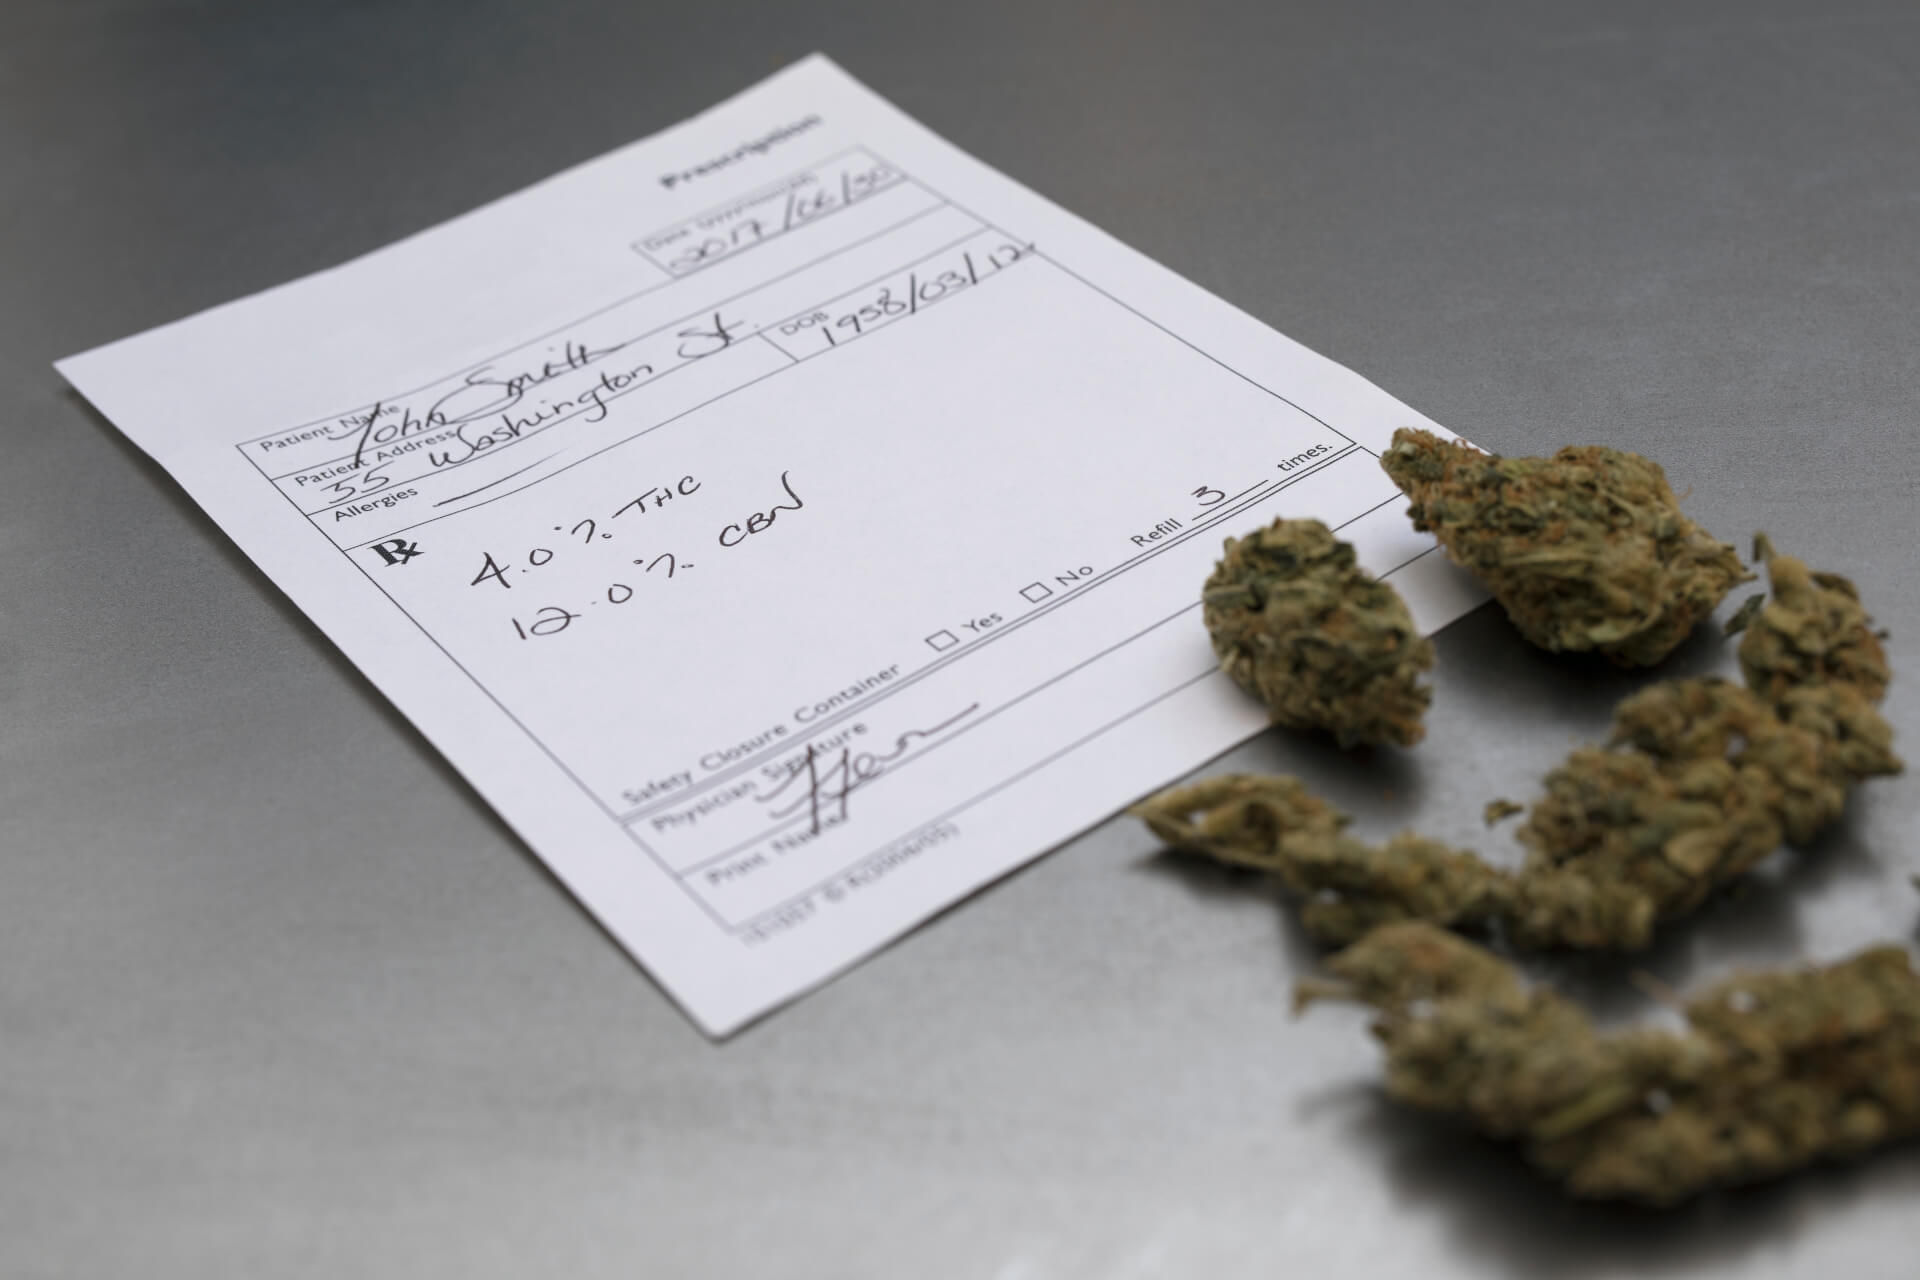 Prescription
Date (yyyy/mm/dd)
2017/06/30
Patient Name
John Smith
Patient Address
35 Washington St.
DOB
1958/03/12
Allergies
Rx
4.0% THC
12.0% CBN
Refill 3 times.
Safety Closure Container Yes No
Physician Signature
Print Name